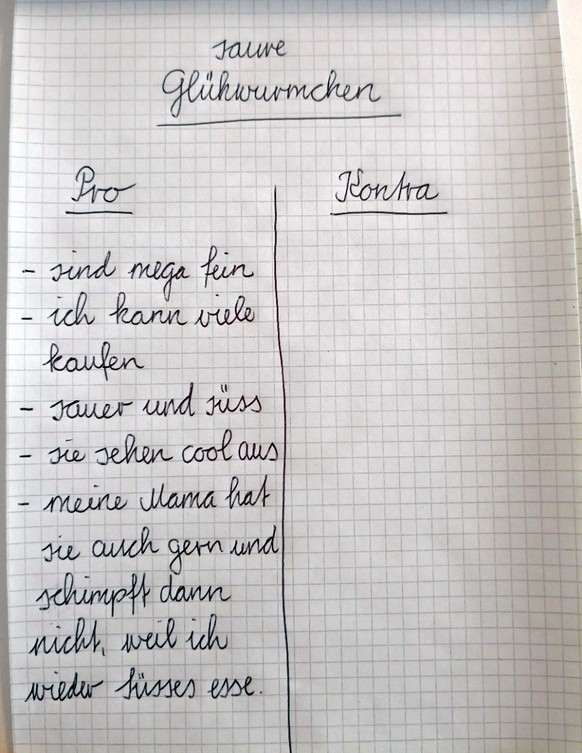 saure
Glühwurmchen
Pro
- sind mega fein
- ich kann viele
kaufen
- sauer und süss
- sie sehen cool aus
- meine Mama hat
sie auch gern und
schimpft dann
nicht, weil ich
wieder süsses esse.
Kontra